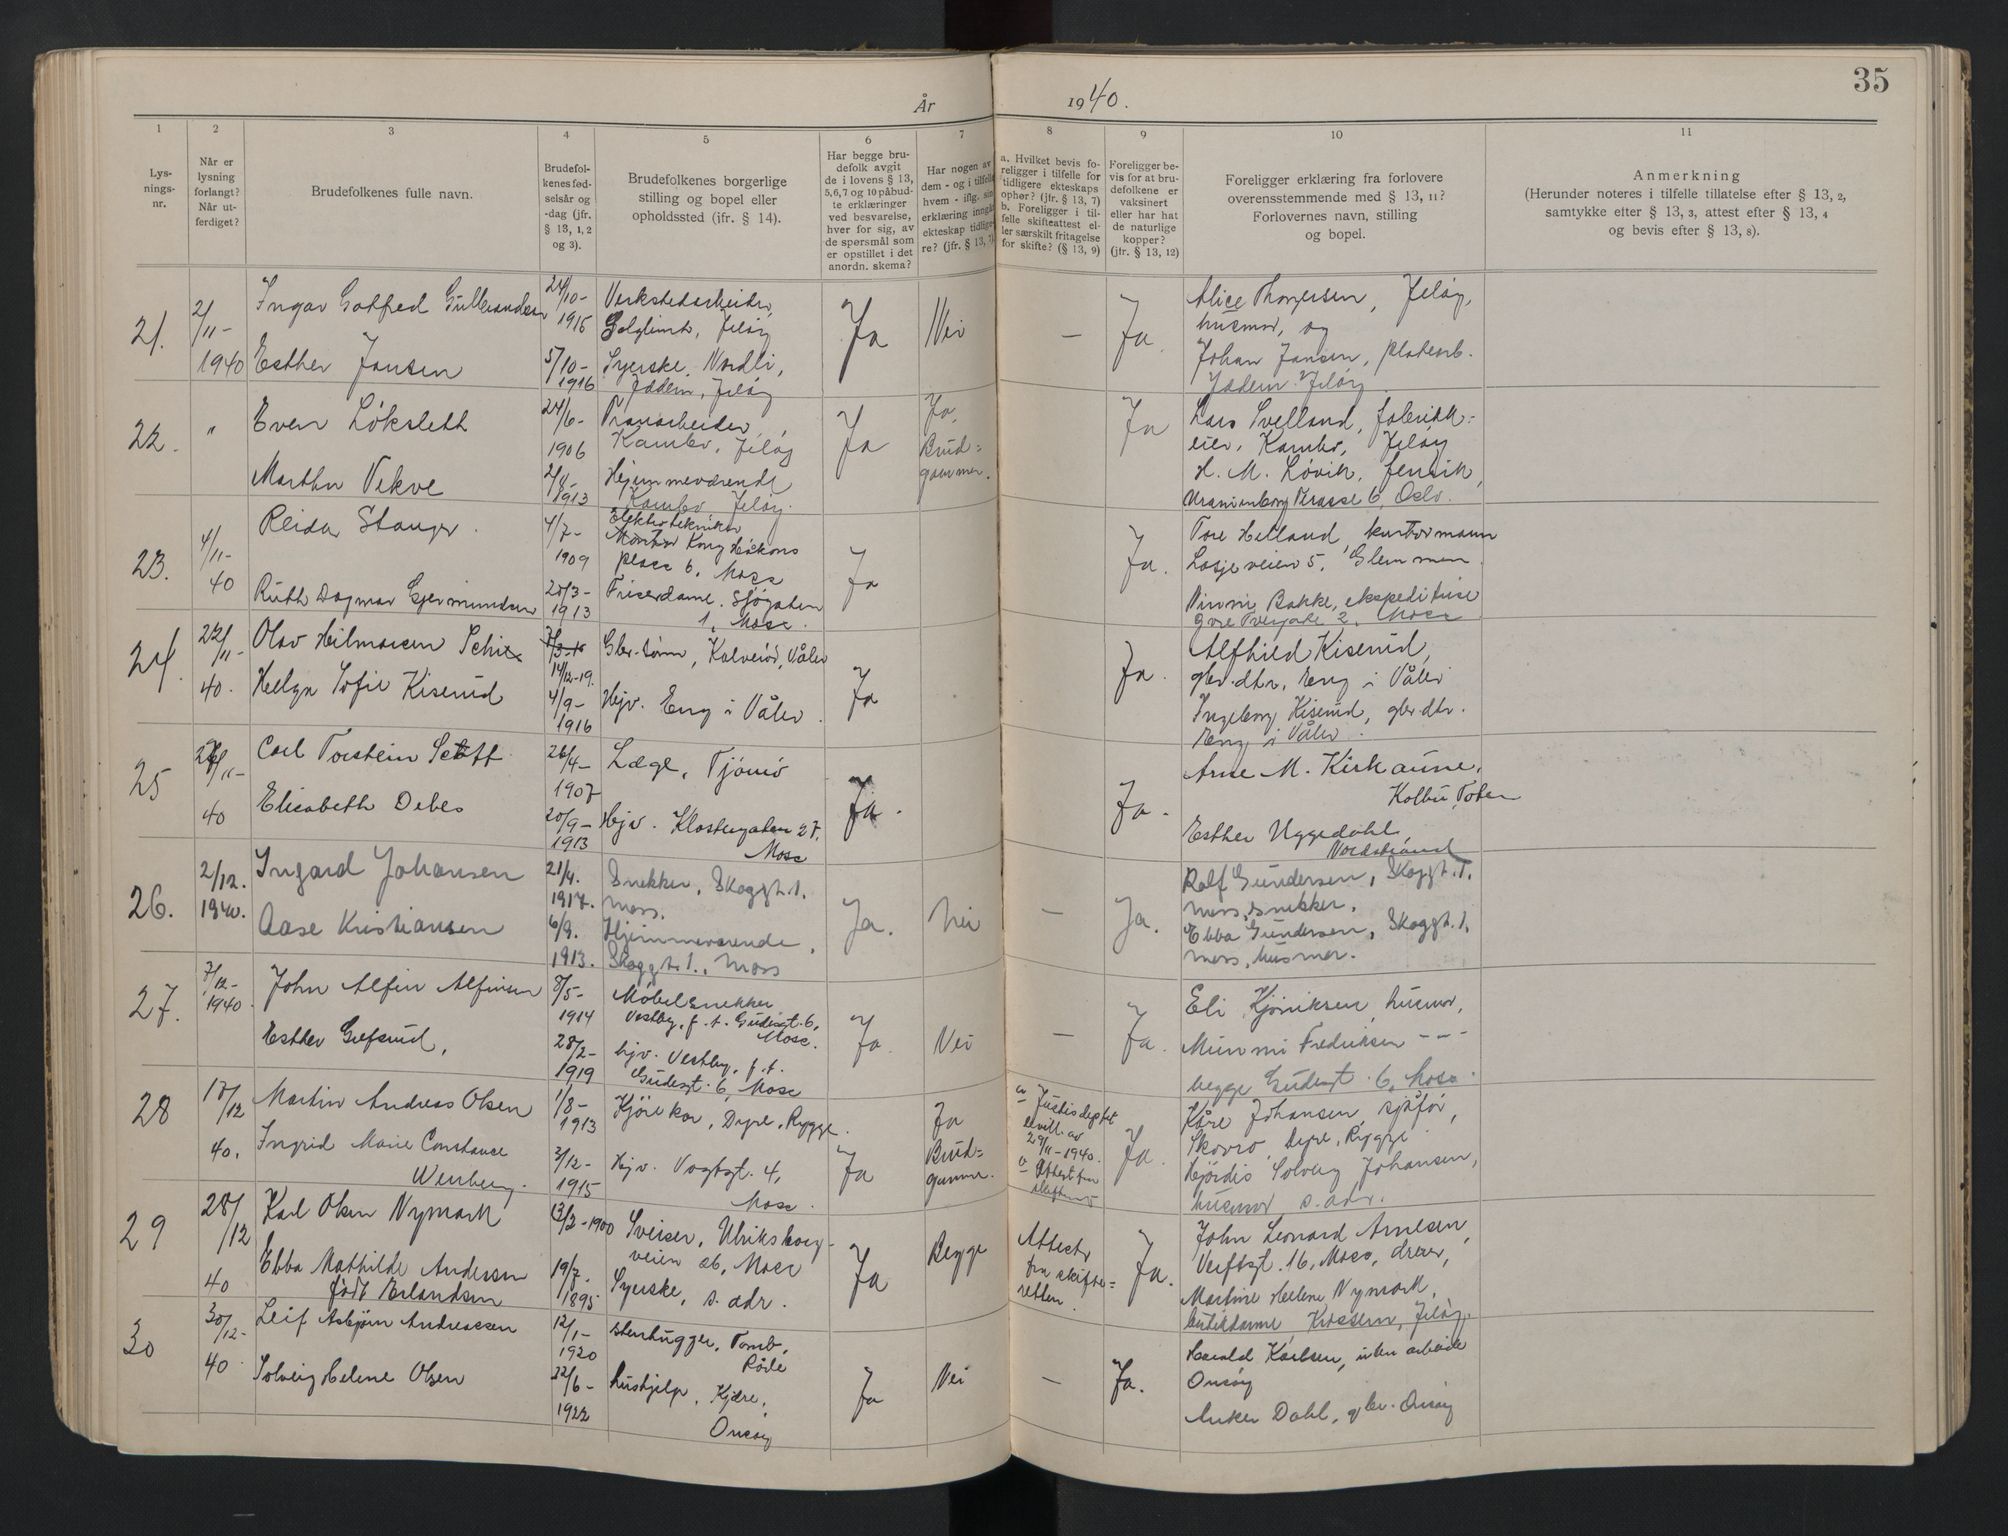 35
År 1940.
1 2 3 4 5 6 7 8 9 10 11
Lys-
nings-
nr.
Når er
lysning
forlangt?
Når ut-
ferdiget?
Brudefolkenes fulle navn.
Brudefol-
kenes fød-
selsår og
-dag (jfr.
§ 13, 1, 2
og 3).
Brudefolkenes borgerlige
stilling og bopel eller
opholdssted (jfr. § 14).
Har begge bru-
defolk avgit
de i lovens § 13,
5, 6, 7 og 10 påbud-
te erklæringer
ved besvarelse,
hver for sig, av
de spørsmål som
er opstillet i det
anordn. skema?
Har nogen av
dem - og i tilfelle
hvem - iflg. sin
erklæring inngått
ekteskap tidlige-
re? (jfr. § 13, 7).
a. Hvilket bevis fo-
religger i tilfelle for
tidligere ekteskaps
ophør? (jfr. § 13, 7)
b. Foreligger i til-
felle skifteattest el-
ler særskilt fritagelse
for skifte? (§ 13, 9)
Foreligger be-
vis for at bru-
defolkene er
vaksinert
eller har hat
de naturlige
kopper?
(jfr. § 13, 12)
Foreligger erklæring fra forlovere
overensstemmende med § 13, 11?
Forlovernes navn, stilling
og bopel.
Anmerkning
(Herunder noteres i tilfelle tillatelse efter § 13, 2,
samtykke efter § 13, 3, attest efter § 13, 4
og bevis efter § 13, 8).
21. 2/11- 1940
Ingar Gotfred Gulbrandsen
24/10- 1915
Verkstedarbeider,
Solglimt, Jeløy
Ja Nei — Ja.
Esther Jansen
5/10- 1916
Syerske, Nordli,
Jædern, Jeløy
Alice Thoresen, Jeløy,
husmor, og
Johan Jansen, platearb.
Jædern. Jeløy.
22. "
Even Løkslett
24/6- 1906
Tranarbeider,
Kambo, Jeløy
Ja
Ja,
Brud=
gommen.
Ja
Martha Vekve
2/8- 1913
Hjemmeværende
Kambo, Jeløy.
Lars Svelland, fabrikk=
eier, Kambo, Jeløy
H. M. Løvik, fenrik,
Uranienborg Terasse 6, Oslo.
23. 4/11- 40
Reidar Stanger.
4/7- 1909
Elektrotekniker
Montør Kong Håkons
plass 6, Moss
Ja Ja.
Ruth Dagmar Gjermundsen
20/3- 1913
Friserdame. Sjøgaten
1, Moss.
Tore Helland, kontormann
Losjeveien 5, Glemmen
Ninni Bakke, ekspeditrise
Øvre Tvergate 2, Moss
24. 22/11- 40.
Olav Hilmarsen Schie
14/12-19.
Gbr.sønn, Kalveiød, Våler
Ja Ja.
Helga Sofie Kiserud
4/9- 1916
Hjv. Eng i Våler.
Alfhild Kiserud,
gbr.dtr, Eng i Våler
Ingeborg Kiserud, gbr.dtr.
Eng i Våler.
25 40
Carl Torstein Scott
26/4- 1907
Læge, Tjømø
Ja. Ja.
Elisabeth Debes
20/9- 1913
Hjv. Klostergaten 27,
Moss
Arne M. Kirkaune,
Kolbu, Toten
Esther Uggedahl,
Nordstrand
26. 2/12. 1940.
Ingard Johansen
21/4. 1917.
Snekker, Skoggt. 1,
Moss.
Ja. Nei — Ja.
Aase Kristiansen
6/9. 1913.
Hjemmeværende,
Skoggt. 1., Moss
Rolf Gundersen, Skoggt. 1,
Moss, snekker.
Ebba Gundersen, Skoggt. 1,
Moss, husmor.
27. 7/12- 1940.
John Alfin Alfinsen
8/5- 1914
Møbelsnekker
Vestby, f. t. Gudesgt. 6,
Moss.
Ja Nei — Ja.
Esther Gjefsrud,
28/2- 1919
hjv. Vestby, f. t.
Gudesgt. 6, Moss
Eli Kjöniksen, husmor,
Mimmi Fredriksen - - -
begge Gudesgt. 6, Moss.
28 17/12 40.
Martin Andreas Olsen
1/8- 1913
Kjørekar, Dyre, Rygge.
Ja
Ja
Brud=
gommen.
a Justisdeptet
bevill. av
29/11-1940.
b Attest fra
skifteretten
Ja.
Ingrid Marie Constance
Wenberg.
3/12- 1915
Hjv. Vogtsgt. 4,
Moss.
Kåre Johansen, sjåfør,
Skovro, Dyre, Rygge.
Hjørdis Solveig Johansen,
husmor, s. adr.
29 28/12 40
Karl Olsen Nymark
13/3-1900
Sveiser, Ulriksborg-
veien 26, Moss
Ja Begge
Attest
fra skifte=
retten.
Ja.
Ebba Mathilde Andersen
født Erlandsen
19/7. 1895.
Syerske, s. adr.
John Leonard Arnesen,
Verftsgt. 16, Moss, dreier,
Martine Helene Nymark,
butikdame, Krossern, Jeløy.
30 30/12- 40.
Leif Asbjørn Andreassen
12/1- 1920
stenhugger, Tomb,
Råde
Ja Nei — Ja.
Solveig Helene Olsen
22/6- 1922
hushjelp, Kjære,
Onsøy
Harald Karlsen, uten arbeide
Onsøy
Anker Dahl, gbr. Onsøy